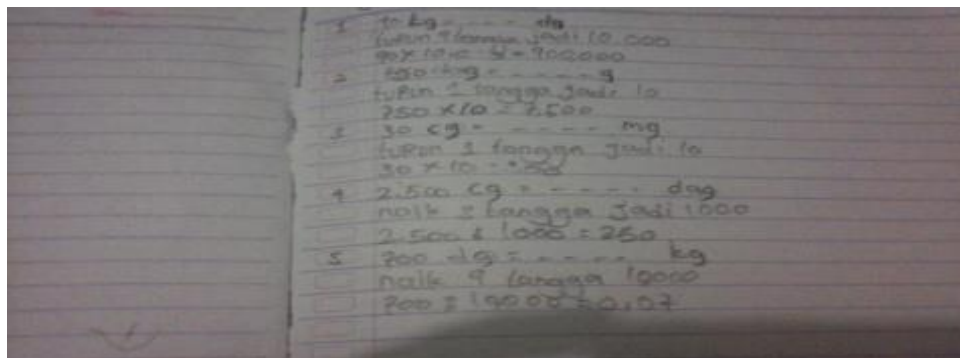 1 kg = - - - - dg
turun 4 tangga jadi 10.000
90 x 10.000 = 900.000
2 250 = - - - - - g
turun 1 tangga jadi 10
250 x 10 = 2.500
3 30 cg = - - - - mg
turun 1 tangga jadi 10
30 x 10 =
4 2.500 cg = - - - - dag
naik 3 tangga jadi 1000
2.500 : 1000 = 250
5 700 dg = - - - - kg
naik 4 tangga 10000
700 : 10000 = 0,07